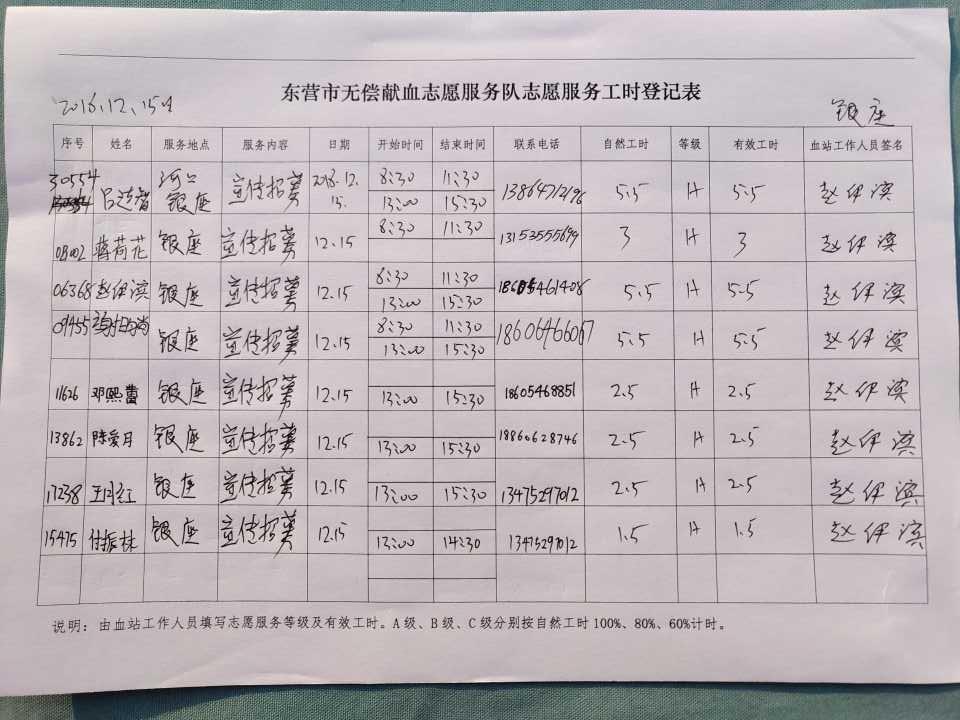 东营市无偿献血志愿服务队志愿服务工时登记表
银座
序号 姓名 服务地点 服务内容 日期 开始时间 结束时间 联系电话 自然工时 等级 有效工时 血站工作人员签名
30554 银座 宣传招募 12. 15. 8:30 11:30 13:00 15:30 5.5 A 5.5 赵伊滨
蒋荷花 银座 宣传招募 12.15 8:30 11:30 13153555699 3 A 3 赵伊滨
06368 赵伊滨 银座 宣传招募 12.15 8:30 11:30 13:00 15:30 18605461408 5.5 A 5.5 赵伊滨
09455 银座 宣传招募 12.15 8:30 11:30 13:00 15:30 5.5 A 5.5 赵伊滨
11626 邓熙 银座 宣传招募 12.15 13:00 15:30 18605468851 2.5 A 2.5 赵伊滨
13862 陈爱月 银座 宣传招募 12.15 13:00 15:30 18860628746 2.5 A 2.5 赵伊滨
17238 银座 宣传招募 12.15 13:00 15:30 13475297012 2.5 A 2.5 赵伊滨
15475 付振林 银座 宣传招募 12.15 13:00 14:30 13475297012 1.5 A 1.5 赵伊滨
说明：由血站工作人员填写志愿服务等级及有效工时。A级、B级、C级分别按自然工时100%、80%、60%计时。